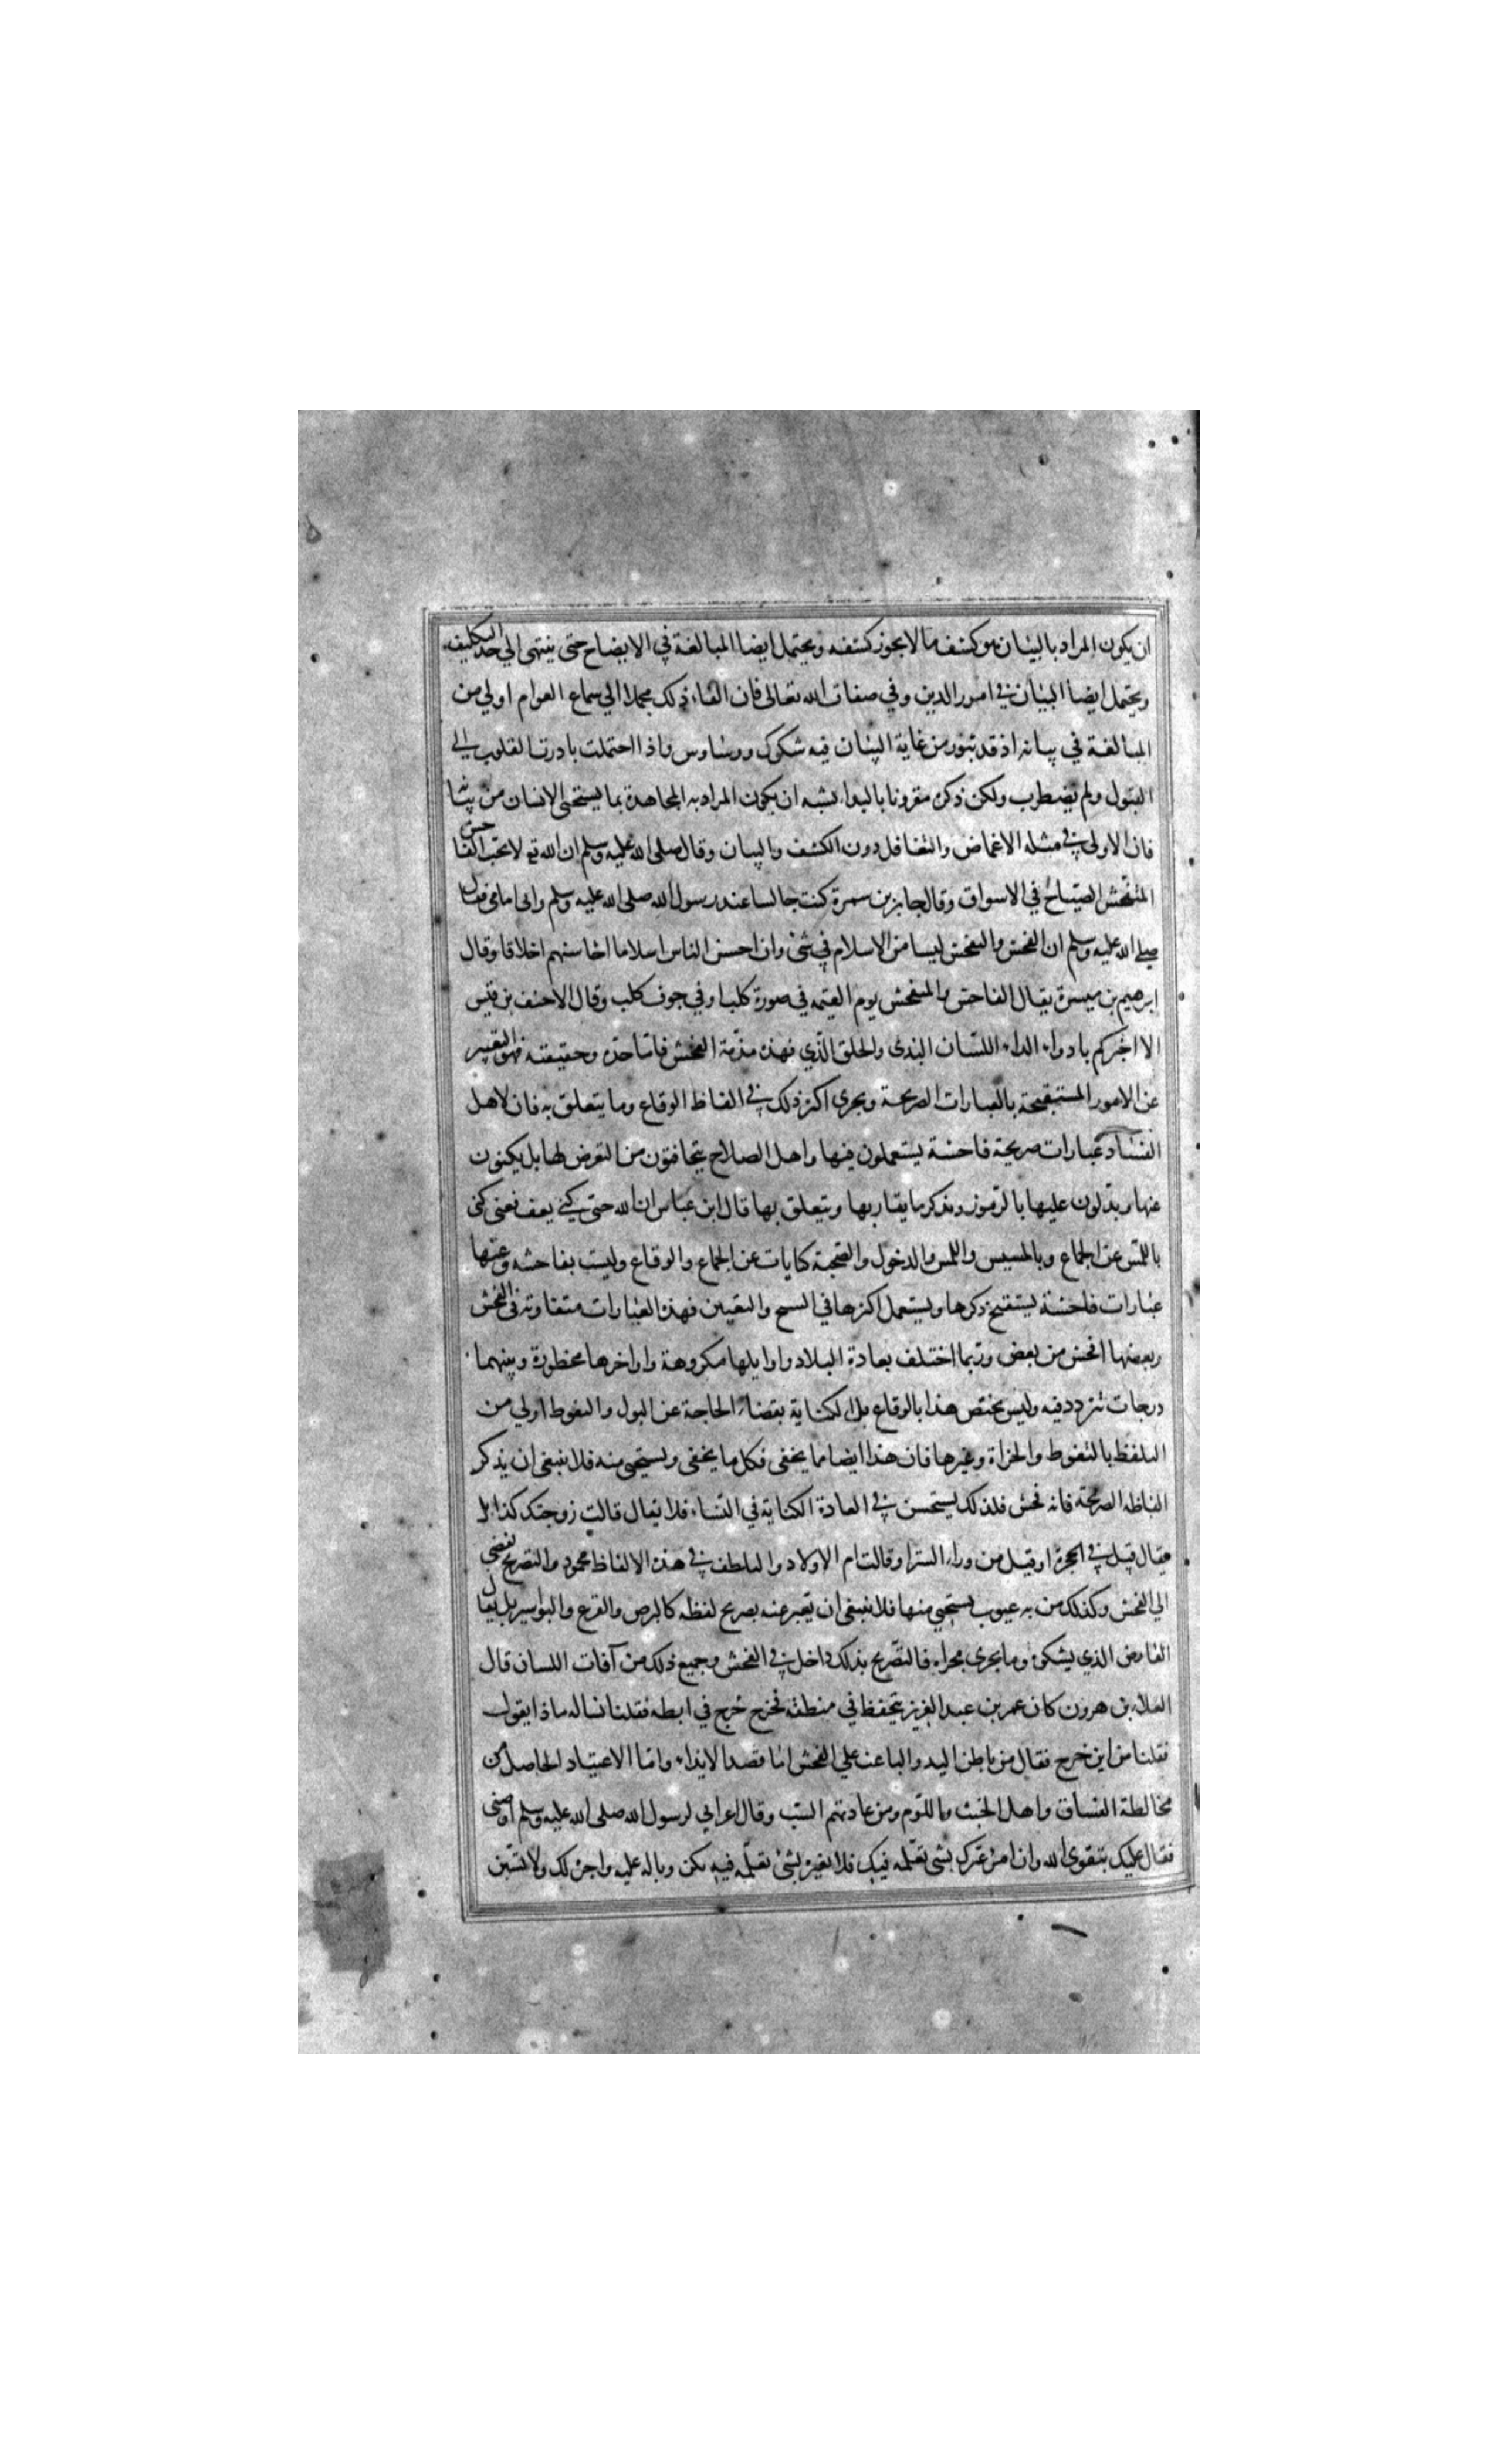 ان يكون المراد بالبيان هو كشف ما لا يجوز كشفه ويحتمل ايضا المبالغة في الايضاح حتى ينتهى الي حد التكليف
ويحتمل ايضا البيان في امور الدين وفي صفات الله تعالى فان القاء ذلك مجملا الي سماع العوام اولي من
المبالغة في بيانه اذ قد تثور من غاية البيان فيه شكوك ووساوس واذا احتملت بادرت القلوب الي
القبول ولم يضطرب ولكن ذكره مقرونا بالبداء يشبه ان يكون المراد به المجاهدة بما يستحيى الانسان من بيانها
فان الاولى في مثله الاغماض والتغافل دون الكشف والبيان وقال صلى الله عليه وسلم ان الله تع لا يحب الفاحش
المتفحش الصياح في الاسواق وقال جابر بن سمرة كنت جالسا عند رسول الله صلى الله عليه وسلم وابى امامى فقال
صلى الله عليه وسلم ان الفحش والتفحش ليسا من الاسلام في شئ وان احسن الناس اسلاما احاسنهم اخلاقا وقال
ابرهيم بن ميسرة يقال الفاحش والمتفحش يوم القيمه في صورة كلب او في جوف كلب وقال الاحنف بن قيس
الا اخبركم بادواء الداء اللسان البذى والخلق الذي فهذه مذمة الفحش فاما حده وحقيقته فهو التعبير
عن الامور المستقبحة بالعبارات الصريحة ويجرى اكثر ذلك في الفاظ الوقاع وما يتعلق به فان لاهل
الفساد عبارات صريحة فاحشة يستعملون فيها واهل الصلاح يتحافتون من التعرض لها بل يكنون
عنها ويدلون عليها بالرموز وبذكر ما يقاربها ويتعلق بها قال ابن عباس ان الله حتى كني يعف فعنى كنى
باللمس عن الجماع وبالمسيس واللمس والدخول والصحبة كنايات عن الجماع والوقاع وليست بفاحشه وعنها
عبارات فاحشة يستقبح ذكرها ويستعمل اكثرها في السح والتعيين فهذه العبارات متفاوته في الفحش
وبعضها افحش من بعض وربما اختلف بعادة البلاد واوايلها مكروهة واواخرها محظورة وبينهما
درجات تتردد فيه وليس يختص هذا بالوقاع بل الكناية بقضاء الحاجة عن البول والتغوط اولي من
التلفظ بالتغوط والخراة وغيرها فان هذا ايضا مما يخفى فكل ما يخفى ويستحيى منه فلا ينبغى ان يذكر
الفاظه الصريحة فانه فحش فلذلك يستحسن في العادة الكناية في النساء فلا يقال قالت زوجتك كذا بل
يقال قيل في الحجرة او قيل من وراء الستر او قالت ام الاولاد والتلطف في هذه الالفاظ محمود والتصريح يفضى
الي الفحش وكذلك من به عيوب يستحيى منها فلا ينبغى ان يعبر عنه بصريح لفظه كالبرص والقرع والبواسير بل يقال
العارض الذي يشكوه وما يجرى مجراه فالتصريح بذلك داخل في الفحش وجميع ذلك من آفات اللسان قال
العلاء بن هرون كان عمر بن عبد العزيز يتحفظ في منطقه فخرج خرج في ابطه فقلنا نساله ماذا يقول
فقلنا من اين خرج فقال من باطن اليد والباعث علي الفحش اما قصد الايذاء واما الاعتياد الحاصل من
مخالطة الفساق واهل الخبث واللؤم ومن عادتهم السب وقال اعرابي لرسول الله صلى الله عليه وسلم اوصنى
فقال عليك بتقوى الله وان امرؤ عيرك بشى تعلمه فيك فلا تعيره بشئ تعلمه فيه يكن وباله عليه واجره لك ولا تسبن